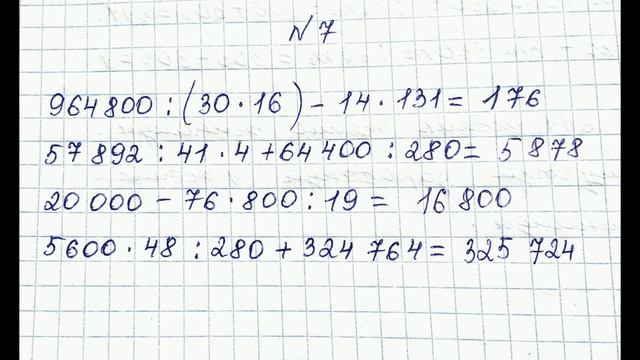 № 7
964 800 : (30 · 16) - 14 · 131 = 176
57 892 : 41 · 4 + 64 400 : 280 = 5 878
20 000 - 76 · 800 : 19 = 16 800
5600 · 48 : 280 + 324 764 = 325 724